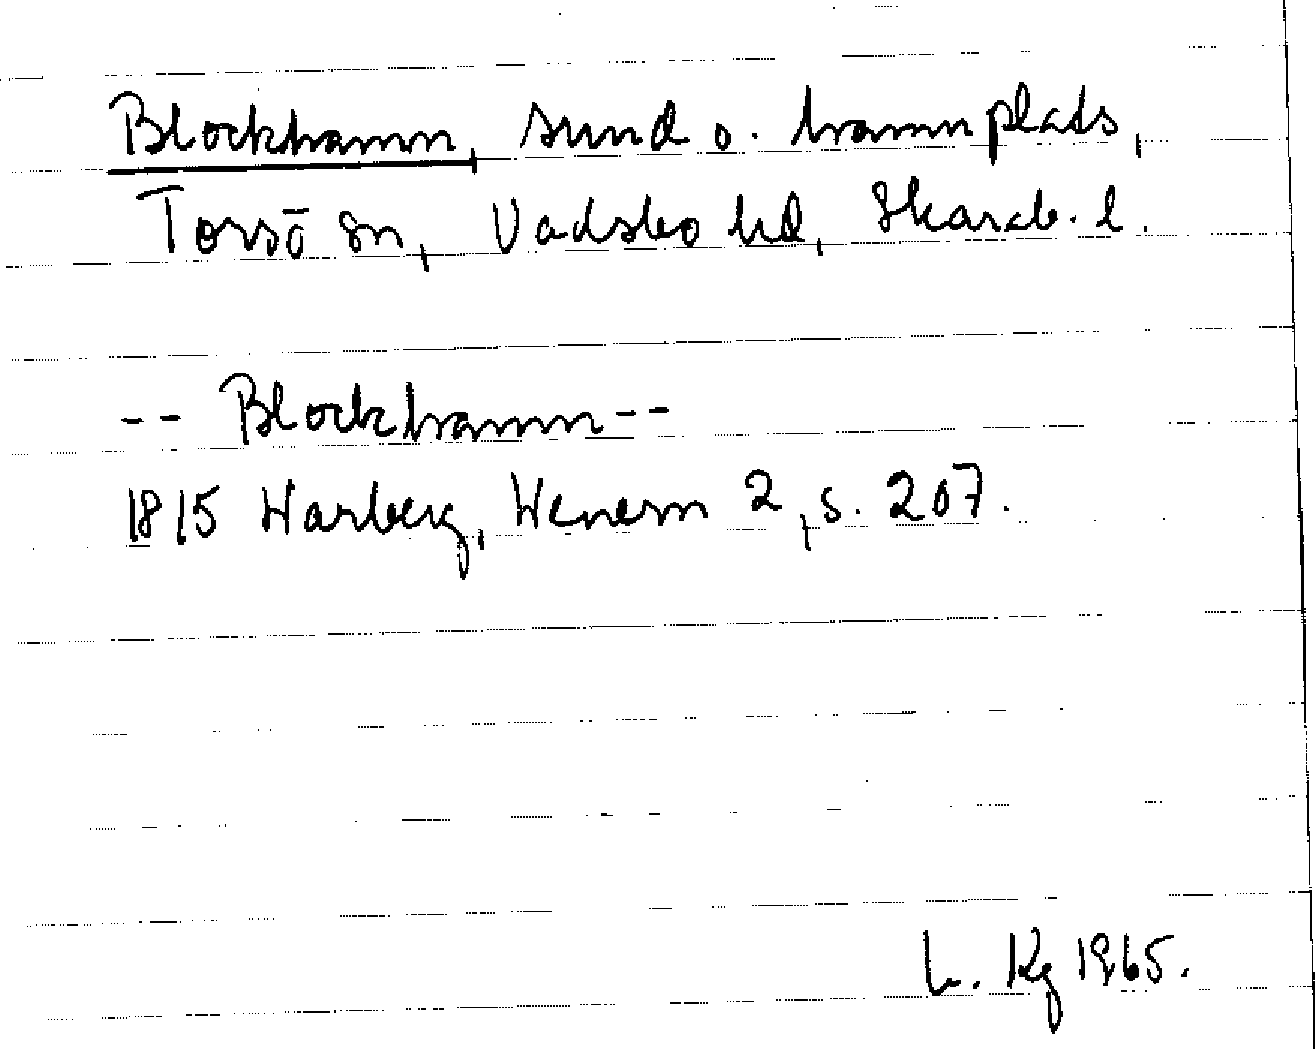 Blockhamn, sund o. hamnplats,
Torsö sn, Vadsbo hd, Skarab. l.
-- Blockhamn --
1815 Warberg, Wenern 2, s. 207.
L. Kg 1965.